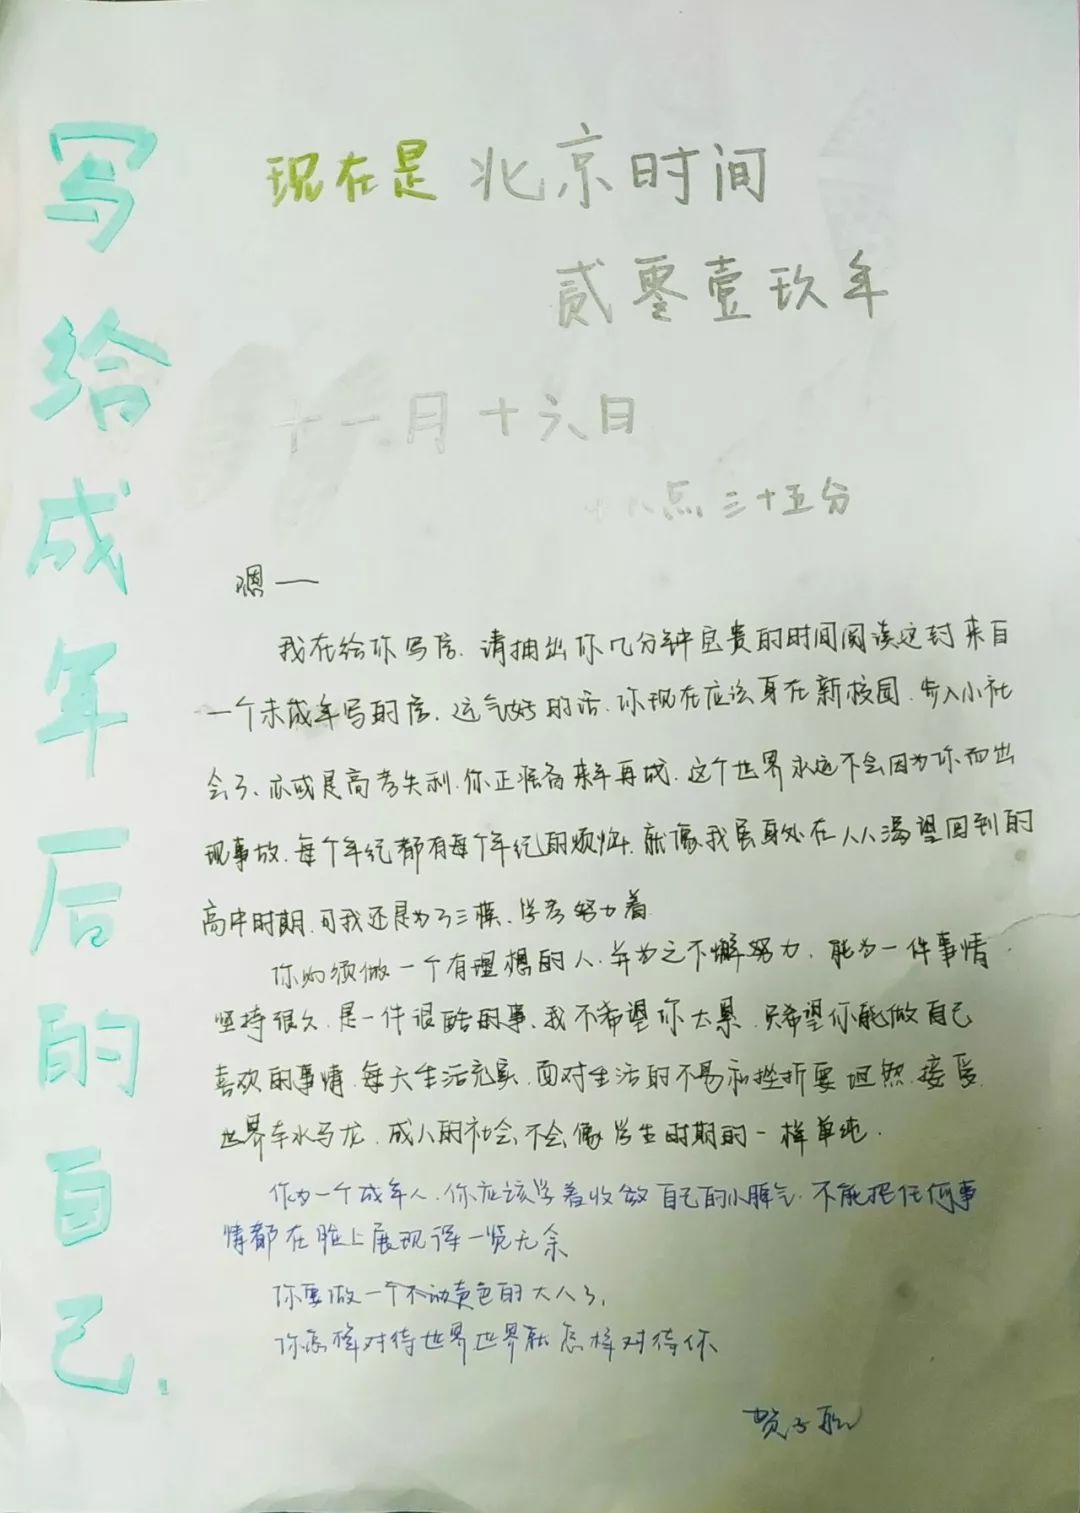 写给成年后的自己.
现在是 北京时间
贰零壹玖年
十一月十六日
十八点三十五分
嗯——
我在给你写信.请抽出你几分钟宝贵的时间阅读这封来自
一个未成年写的信.运气好的话.你现在应该身在新校园.步入小社
会了、亦或是高考失利.你正准备来年再战.这个世界永远不会因为你而出
现事故.每个年纪都有每个年纪的烦恼.就像我虽身处在人人渴望回到的
高中时期.可我还是为了三模、学考努力着
你必须做一个有理想的人.并为之不懈努力.能为一件事情
坚持很久.是一件很酷的事、我不希望你太累.只希望你能做自己
喜欢的事情.每天生活充实.面对生活的不易和挫折要坦然.接受
世界车水马龙.成人的社会不会像学生时期的一样单纯.
作为一个成年人.你应该学着收敛自己的小脾气.不能把任何事
情都在脸上展现得一览无余
你要做一个不动声色的大人了.
你怎样对待世界世界就怎样对待你